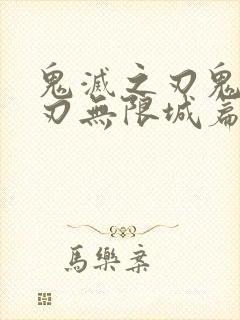 鬼滅之刃鬼
刃無限城篇
馬樂案